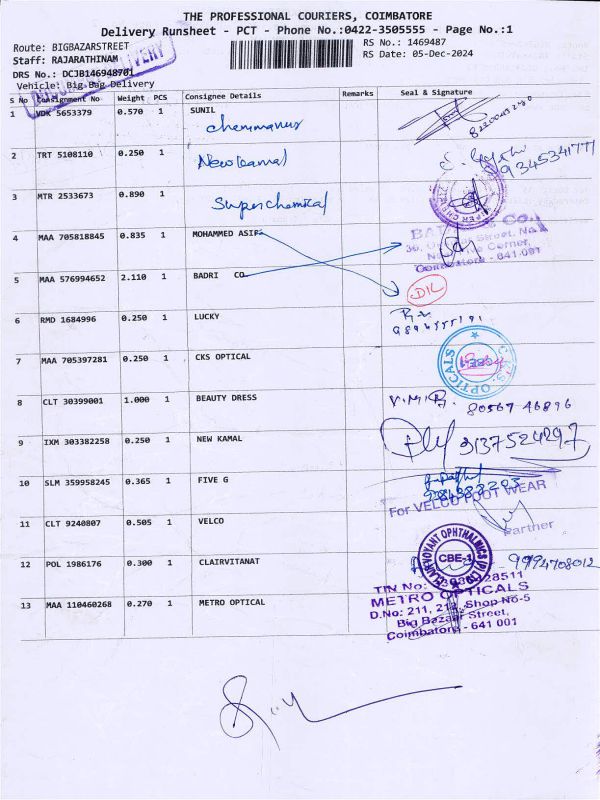 THE PROFESSIONAL COURIERS, COIMBATORE
Delivery Runsheet - PCT - Phone No.:0422-3505555 - Page No.:1
Route: BIGBAZARSTREET
RS No.: 1469487
Staff: RAJARATHINAM
RS Date: 05-Dec-2024
DRS No.: DCJB146948701
Vehicle: Big Bag Delivery
S No Consignment No Weight PCS Consignee Details Remarks Seal & Signature
1 VDK 5653379 0.570 1 SUNIL
Chemmanur
2 TRT 5108110 0.250 1
New kamal
9345341777
3 MTR 2533673 0.890 1
Super chemical
4 MAA 705818845 0.835 1 MOHAMMED ASIF
Street, No.
Corner,
Coimbatore - 641 001
5 MAA 576994652 2.110 1 BADRI CO
DIL
6 RMD 1684996 0.250 1 LUCKY
7 MAA 705397281 0.250 1 CKS OPTICAL
C.K.S. OPTICALS
CBE-1
8 CLT 30399001 1.000 1 BEAUTY DRESS
80567 46896
9 IXM 303382258 0.250 1 NEW KAMAL
9137524297
10 SLM 359958245 0.365 1 FIVE G
11 CLT 9240807 0.505 1 VELCO
For VELCO FOOT WEAR
Partner
12 POL 1986176 0.300 1 CLAIRVITANAT
CLAIRVOYANT OPHTHALMICS (P) LTD
CBE-1
9994708012
13 MAA 110460268 0.270 1 METRO OPTICAL
TIN No:
METRO OPTICALS
D.No: 211, 212, Shop No-5
Big Bazaar Street,
Coimbatore - 641 001